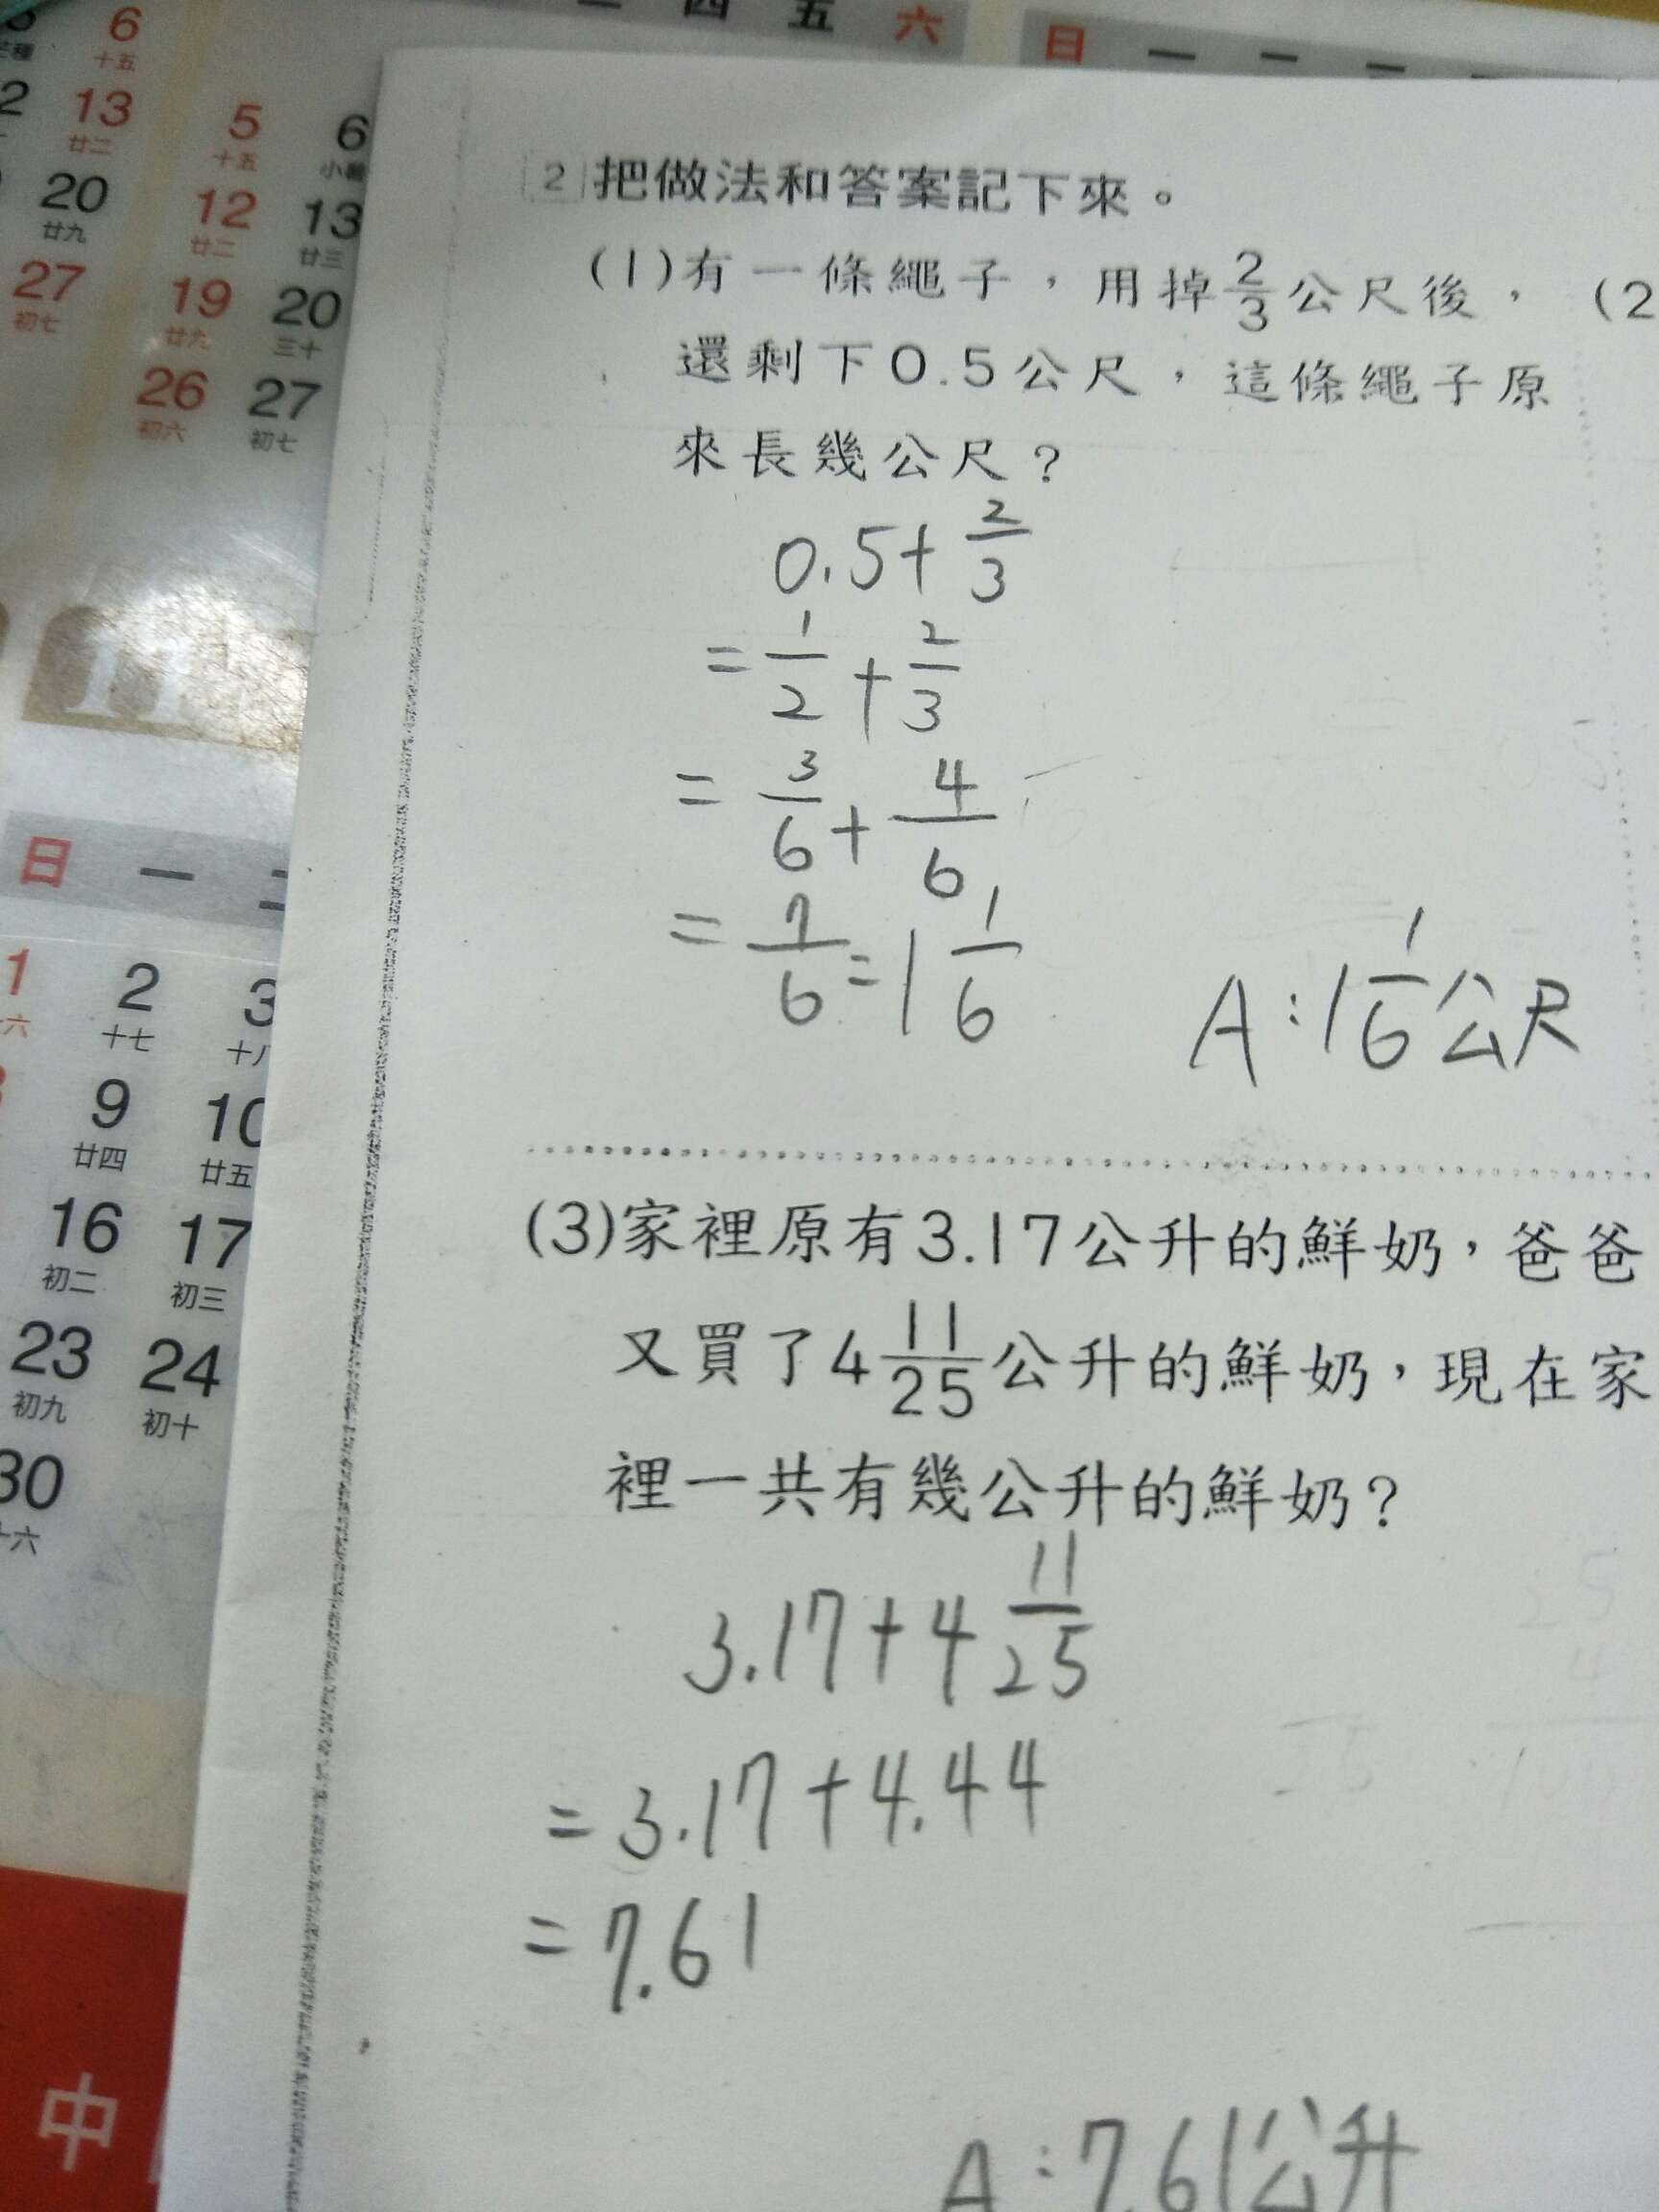 四 五 六
日 一 二 一
6
十五
2 13
廿二
20
廿九
27
初七
5 6
十五 小暑
12 13
廿二 廿三
19 20
廿九 三十
26 27
初六 初七
11
日 一 二
1 2 3
十七
9 10
廿四 廿五
16 17
初二 初三
23 24
初九 初十
30
十六
中
2 把做法和答案記下來。
(1)有一條繩子，用掉2/3公尺後， (2
還剩下0.5公尺，這條繩子原
來長幾公尺？
0.5+2/3
=1/2+2/3
=3/6+4/6
=7/6=1 1/6
A:1 1/6公尺
(3)家裡原有3.17公升的鮮奶，爸爸
又買了4 11/25公升的鮮奶，現在家
裡一共有幾公升的鮮奶？
3.17+4 11/25
=3.17+4.44
=7.61
A:7.61公升